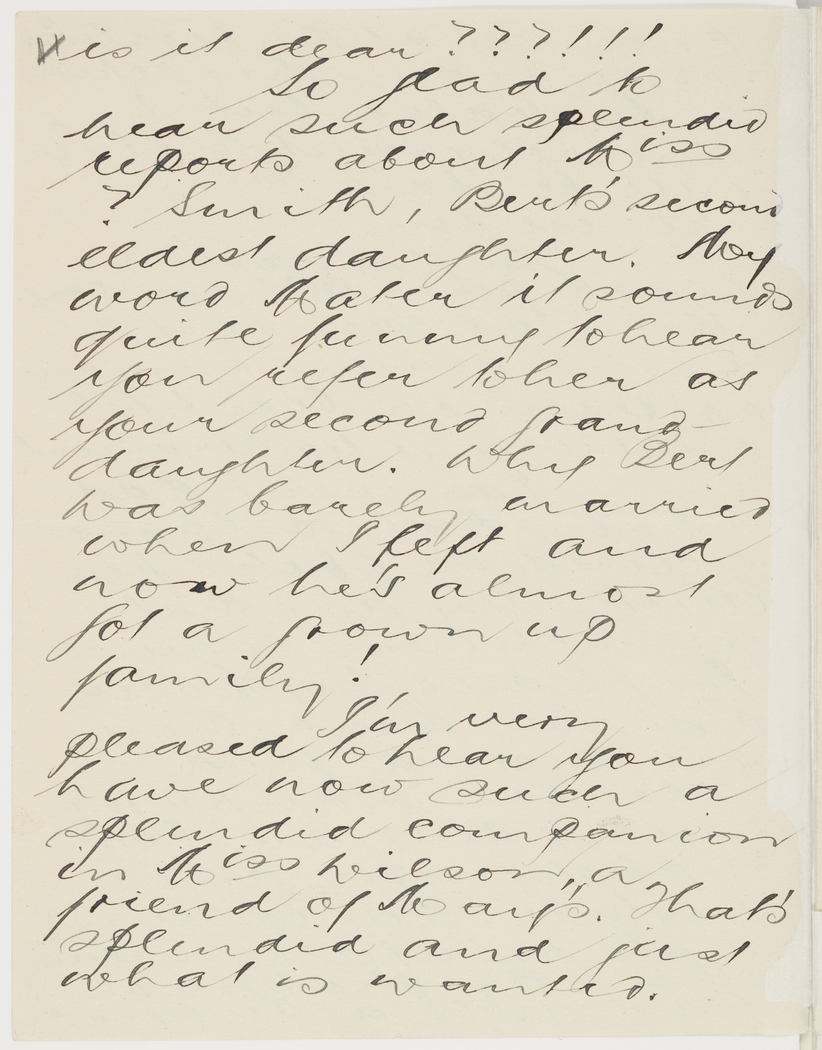 is it dear ???!!!
So glad to
hear such splendid
reports about Miss
? Smith, Bert's second
eldest daughter. My
word Mater it sounds
quite funny to hear
you refer to her as
your second grand-
daughter. Why Bert
was barely married
when I left and
now he's almost
got a grown up
family!
I'm very
pleased to hear you
have now such a
splendid companion
in Miss Wilson, a
friend of Mary's. That's
splendid and just
what is wanted.